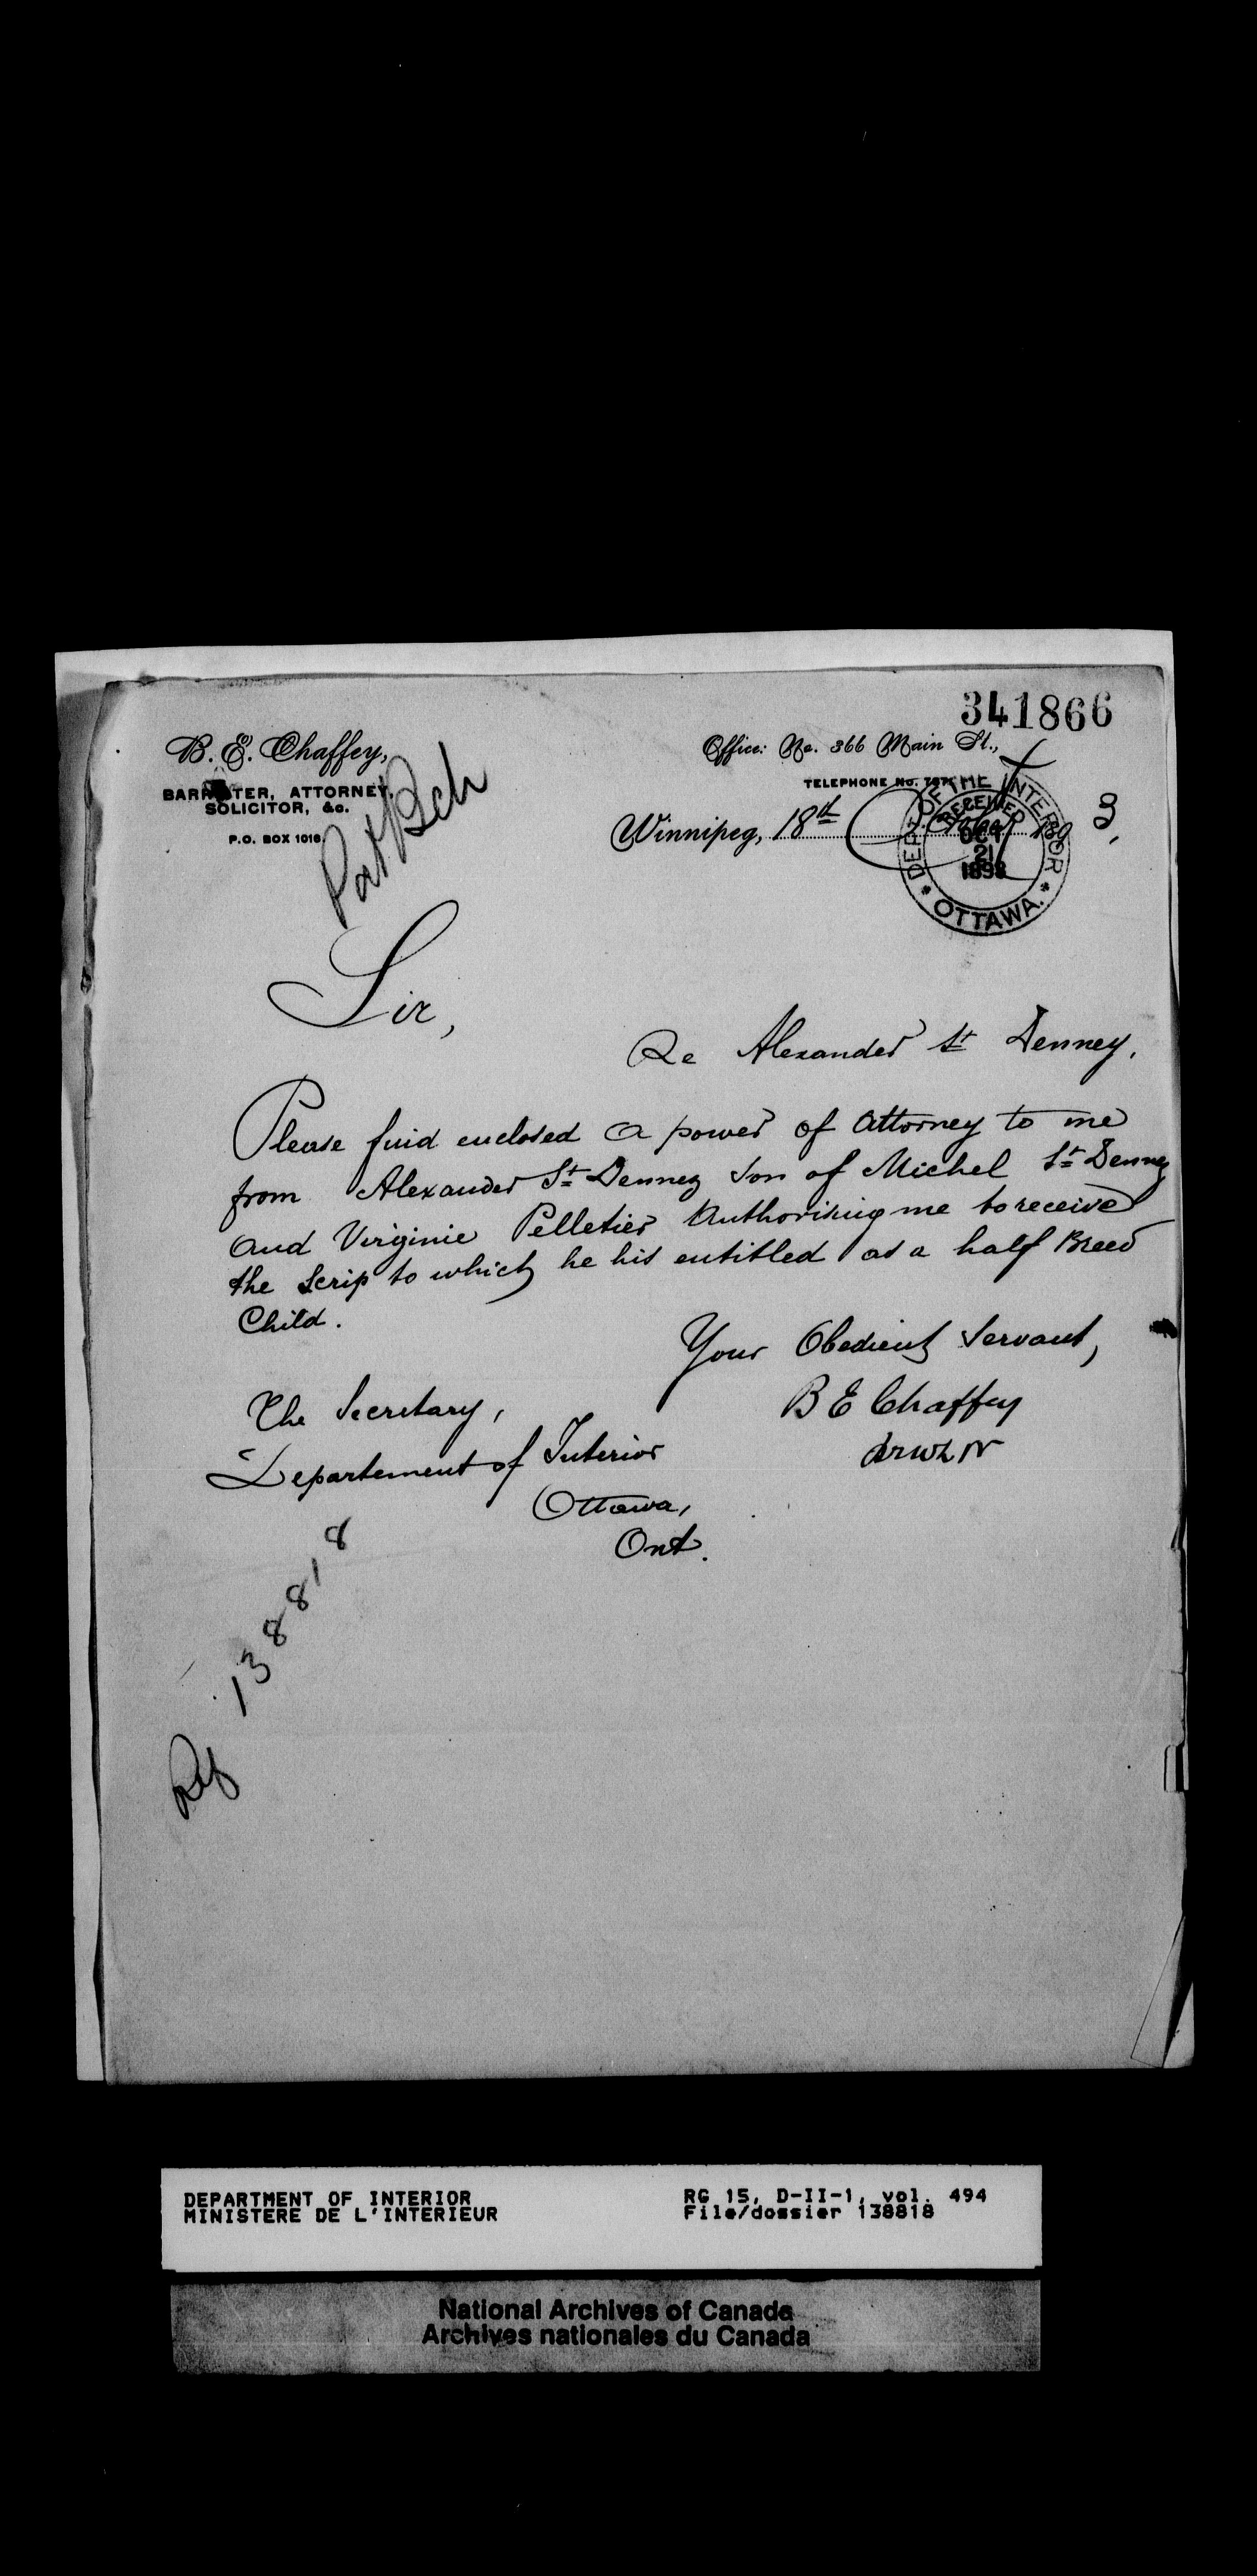 341866
B. E. Chaffey,
BARRISTER, ATTORNEY,
SOLICITOR, &c.
P.O. BOX 1018
Office: No. 366 Main St.,
TELEPHONE No.
Winnipeg, 18th 189 3,
DEPT. OF THE INTERIOR
RECEIVED
OCT
21
1893
OTTAWA.
Sir,
Re Alexander St Denney,
Please find enclosed a power of Attorney to me
from Alexander St Denney Son of Michel St Denney
and Virginie Pelletier Authorising me to receive
the Scrip to which he his entitled as a half Breed
Child.
Your Obedient Servant,
B E Chaffey
The Secretary,
Departement of Interior
Ottawa,
Ont.
Ref 138818
DEPARTMENT OF INTERIOR
MINISTERE DE L'INTERIEUR
RG 15, D-II-1, vol. 494
File/dossier 138818
National Archives of Canada
Archives nationales du Canada